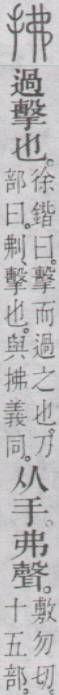 拂
過擊也。徐鍇曰。擊而過之也。刀部曰。刜、擊也。與拂義同。从手。弗聲。敷勿切。十五部。